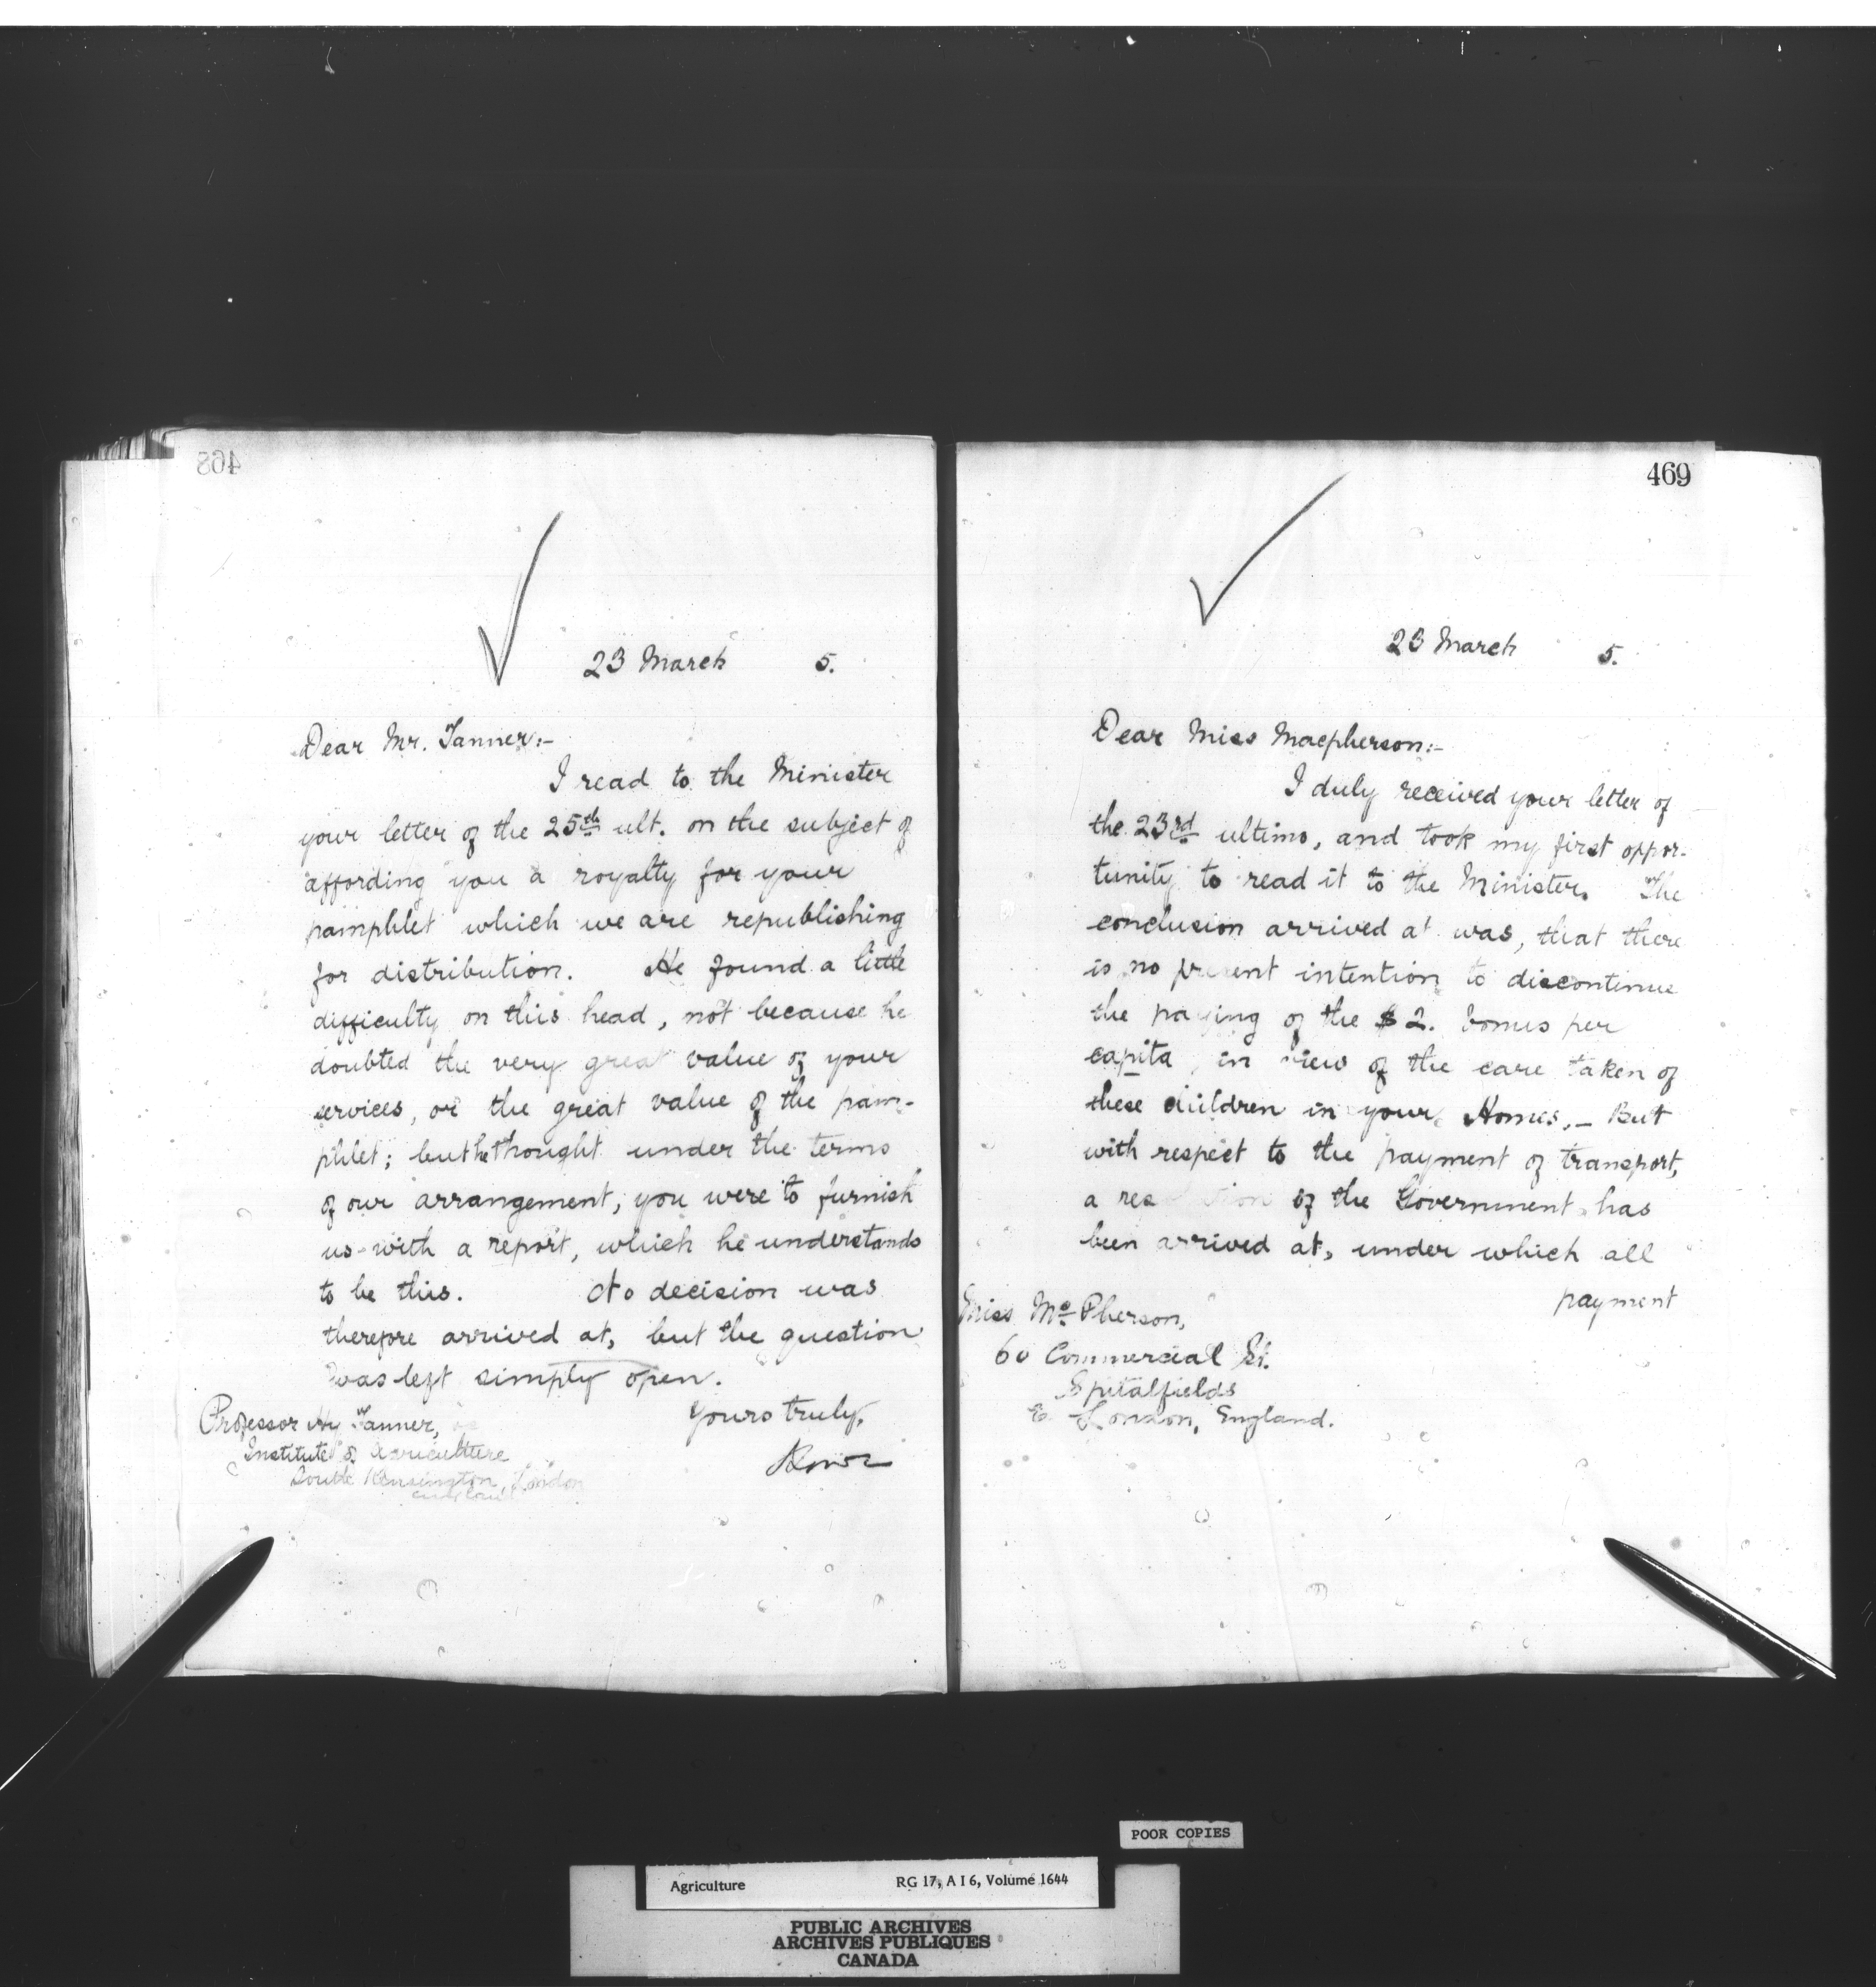 468
23 March 5.
Dear Mr. Tanner:-
I read to the Minister
your letter of the 25th ult. on the subject of
affording you a royalty for your
pamphlet which we are republishing
for distribution. He found a little
difficulty on this head, not because he
doubted the very great value of your
services, or the great value of the pam-
phlet; but he thought under the terms
of our arrangement, you were to furnish
us with a report, which he understands
to be this. No decision was
therefore arrived at, but the question
was left simply open.
Yours truly,
Professor Hy Tanner,
Institute of Agriculture
South Kensington, London
England
469
23 March 5.
Dear Miss Macpherson:-
I duly received your letter of
the 23rd ultimo, and took my first oppor-
tunity to read it to the Minister. The
conclusion arrived at was, that there
is no present intention to discontinue
the paying of the $2. bonus per
capita, in view of the care taken of
these children in your Homes.- But
with respect to the payment of transport,
a of the Government has
been arrived at, under which all
payment
Miss McPherson,
60 Commercial St.
Spitalfields
E. London, England.
POOR COPIES
Agriculture RG 17, A I 6, Volume 1644
PUBLIC ARCHIVES
ARCHIVES PUBLIQUES
CANADA